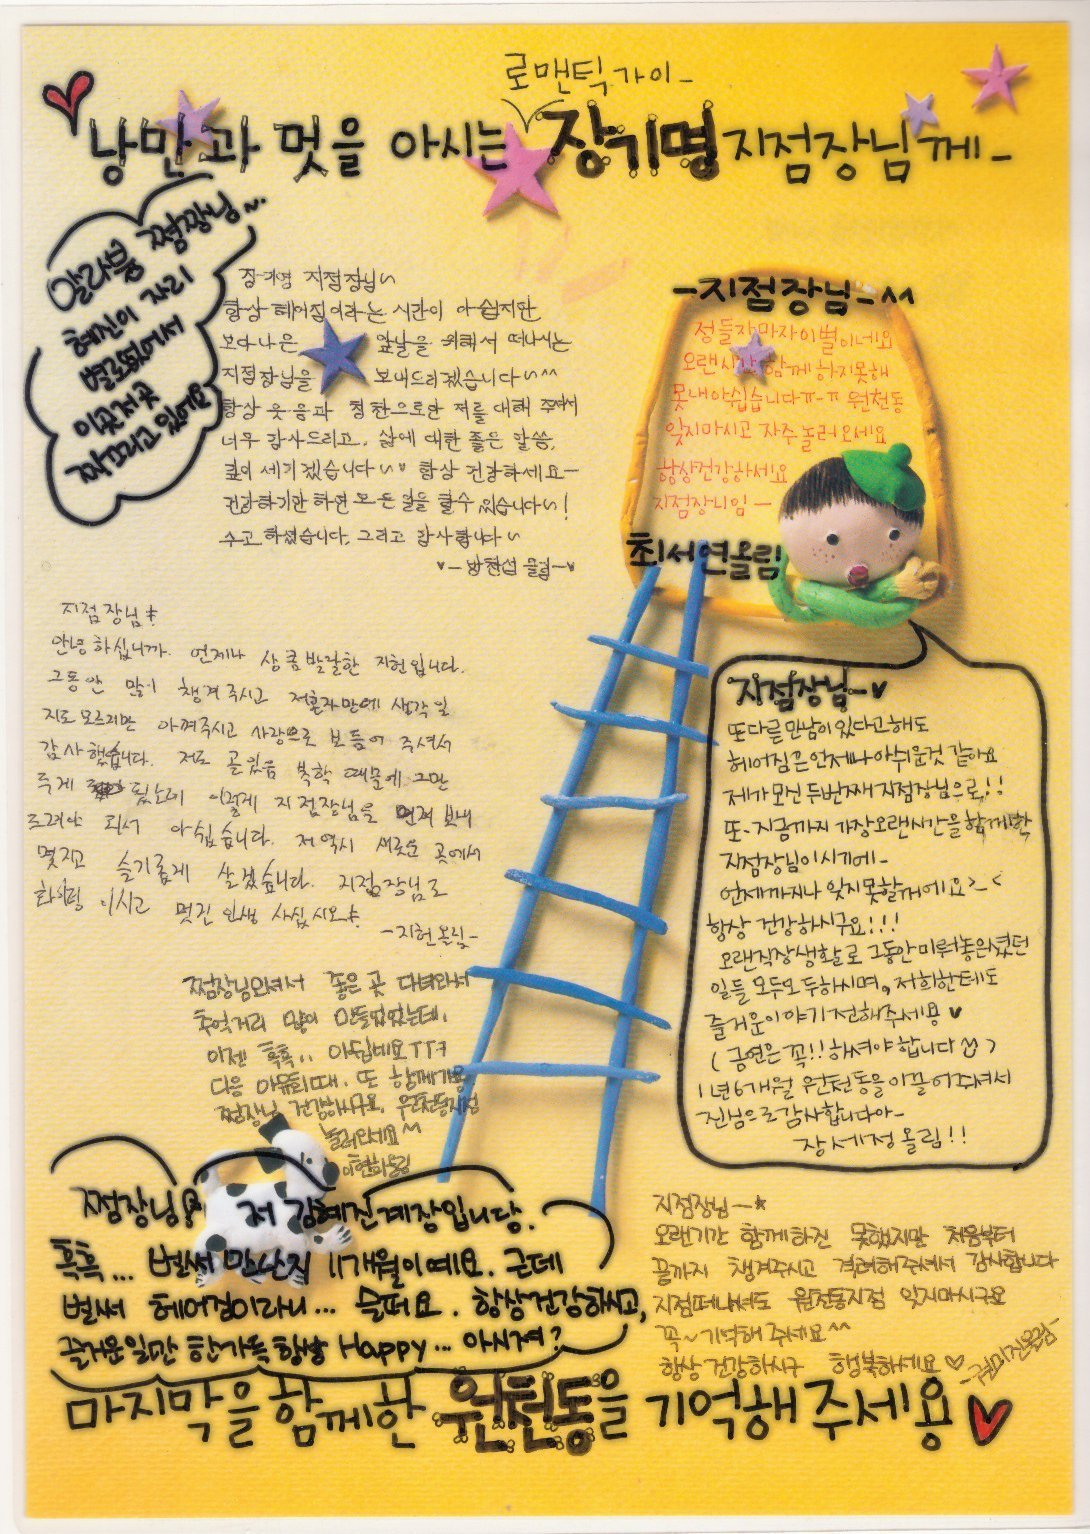 로맨틱가이-
낭만과 멋을 아시는 장기명 지점장님께-
알라븅 쩜장님~
혜진이 자리
별로였에서
이곳저곳
찌끄리고 있어요
장기명 지점장님~
항상 헤어짐이라는 시간이 아쉽지만
보다 나은 앞날을 위해서 떠나시는
지점장님을 보내드리겠습니다~^^
항상 웃음과 칭찬으로만 저를 대해 주셔서
너무 감사드리고, 삶에 대한 좋은 말씀,
깊이 새기겠습니다~♥ 항상 건강하세요-
건강하기만 하면 모든 일을 할수 있습니다~!
수고 하셨습니다. 그리고 감사합니다~
♥-방현섭 올림-♥
-지점장님-^^
정들자마자이별이네요
오랜시간 함께 하지못해
못내아쉽습니다ㅠ-ㅠ 원천동
잊지마시고 자주놀러오세요
항상건강하세요
지점장니임-
최서연올림
지점장님!
안녕하십니까. 언제나 상큼발랄한 지헌입니다.
그동안 많이 챙겨주시고 저혼자만에 생각일
지도 모르지만 아껴주시고 사랑으로 보듬어 주셔서
감사했습니다. 저도 곧있음 복학 때문에 그만
두게 될뗀데 이렇게 지점장님을 먼저 보내
드려야 되서 아쉽습니다. 저 역시 새로운 곳에서
멋지고 슬기롭게 살겠습니다. 지점장님도
화이팅 하시고 멋진 인생 사십시오!
-지헌올림-
지점장님-♥
또다른만남이있다고해도
헤어짐은언제나아쉬운것 같아요
제가 모신 두번째 지점장님으로!!
또-지금까지 가장오랜시간을함께한
지점장님이시기에-
언제까지나 잊지못할꺼에요>_<
항상 건강하시구요!!!
오랜직장생활로 그동안미뤄놓은셨던
일들 모두모두하시며, 저희한테도
즐거운이야기전해주세용♥
(금연은 꼭!!하셔야합니다)
1년6개월 원천동을이끌어주셔서
진심으로감사합니다아-
장세정 올림!!
쩜장님오셔서 좋은 곳 다녀와서
추억거리 많이 만들었었는데,
이젠 흑흑.. 아쉽네요ㅜㅜ
다음 야유회때. 또 함께가용
쩜장님 건강하시구요, 원천동지점
놀러오세요^^
이현희올림
쩜장님! 저 김혜진계장입니당.
흑흑... 벌써 만난지 11개월이예요. 근데
벌써 헤어짐이라니... 슬퍼요. 항상건강하시고,
즐거운일만 한가득 항상 Happy... 아시겨?
지점장님-★
오랜기간 함께하진 못했지만 처음부터
끝까지 챙겨주시고 격려해주셔서 감사합니다
지점떠나셔도 원천동지점 잊지마시구요
꼭~기억해 주세요^^
항상건강하시구 행복하세요♡
마지막을 함께한 원천동을 기억해주세용♥